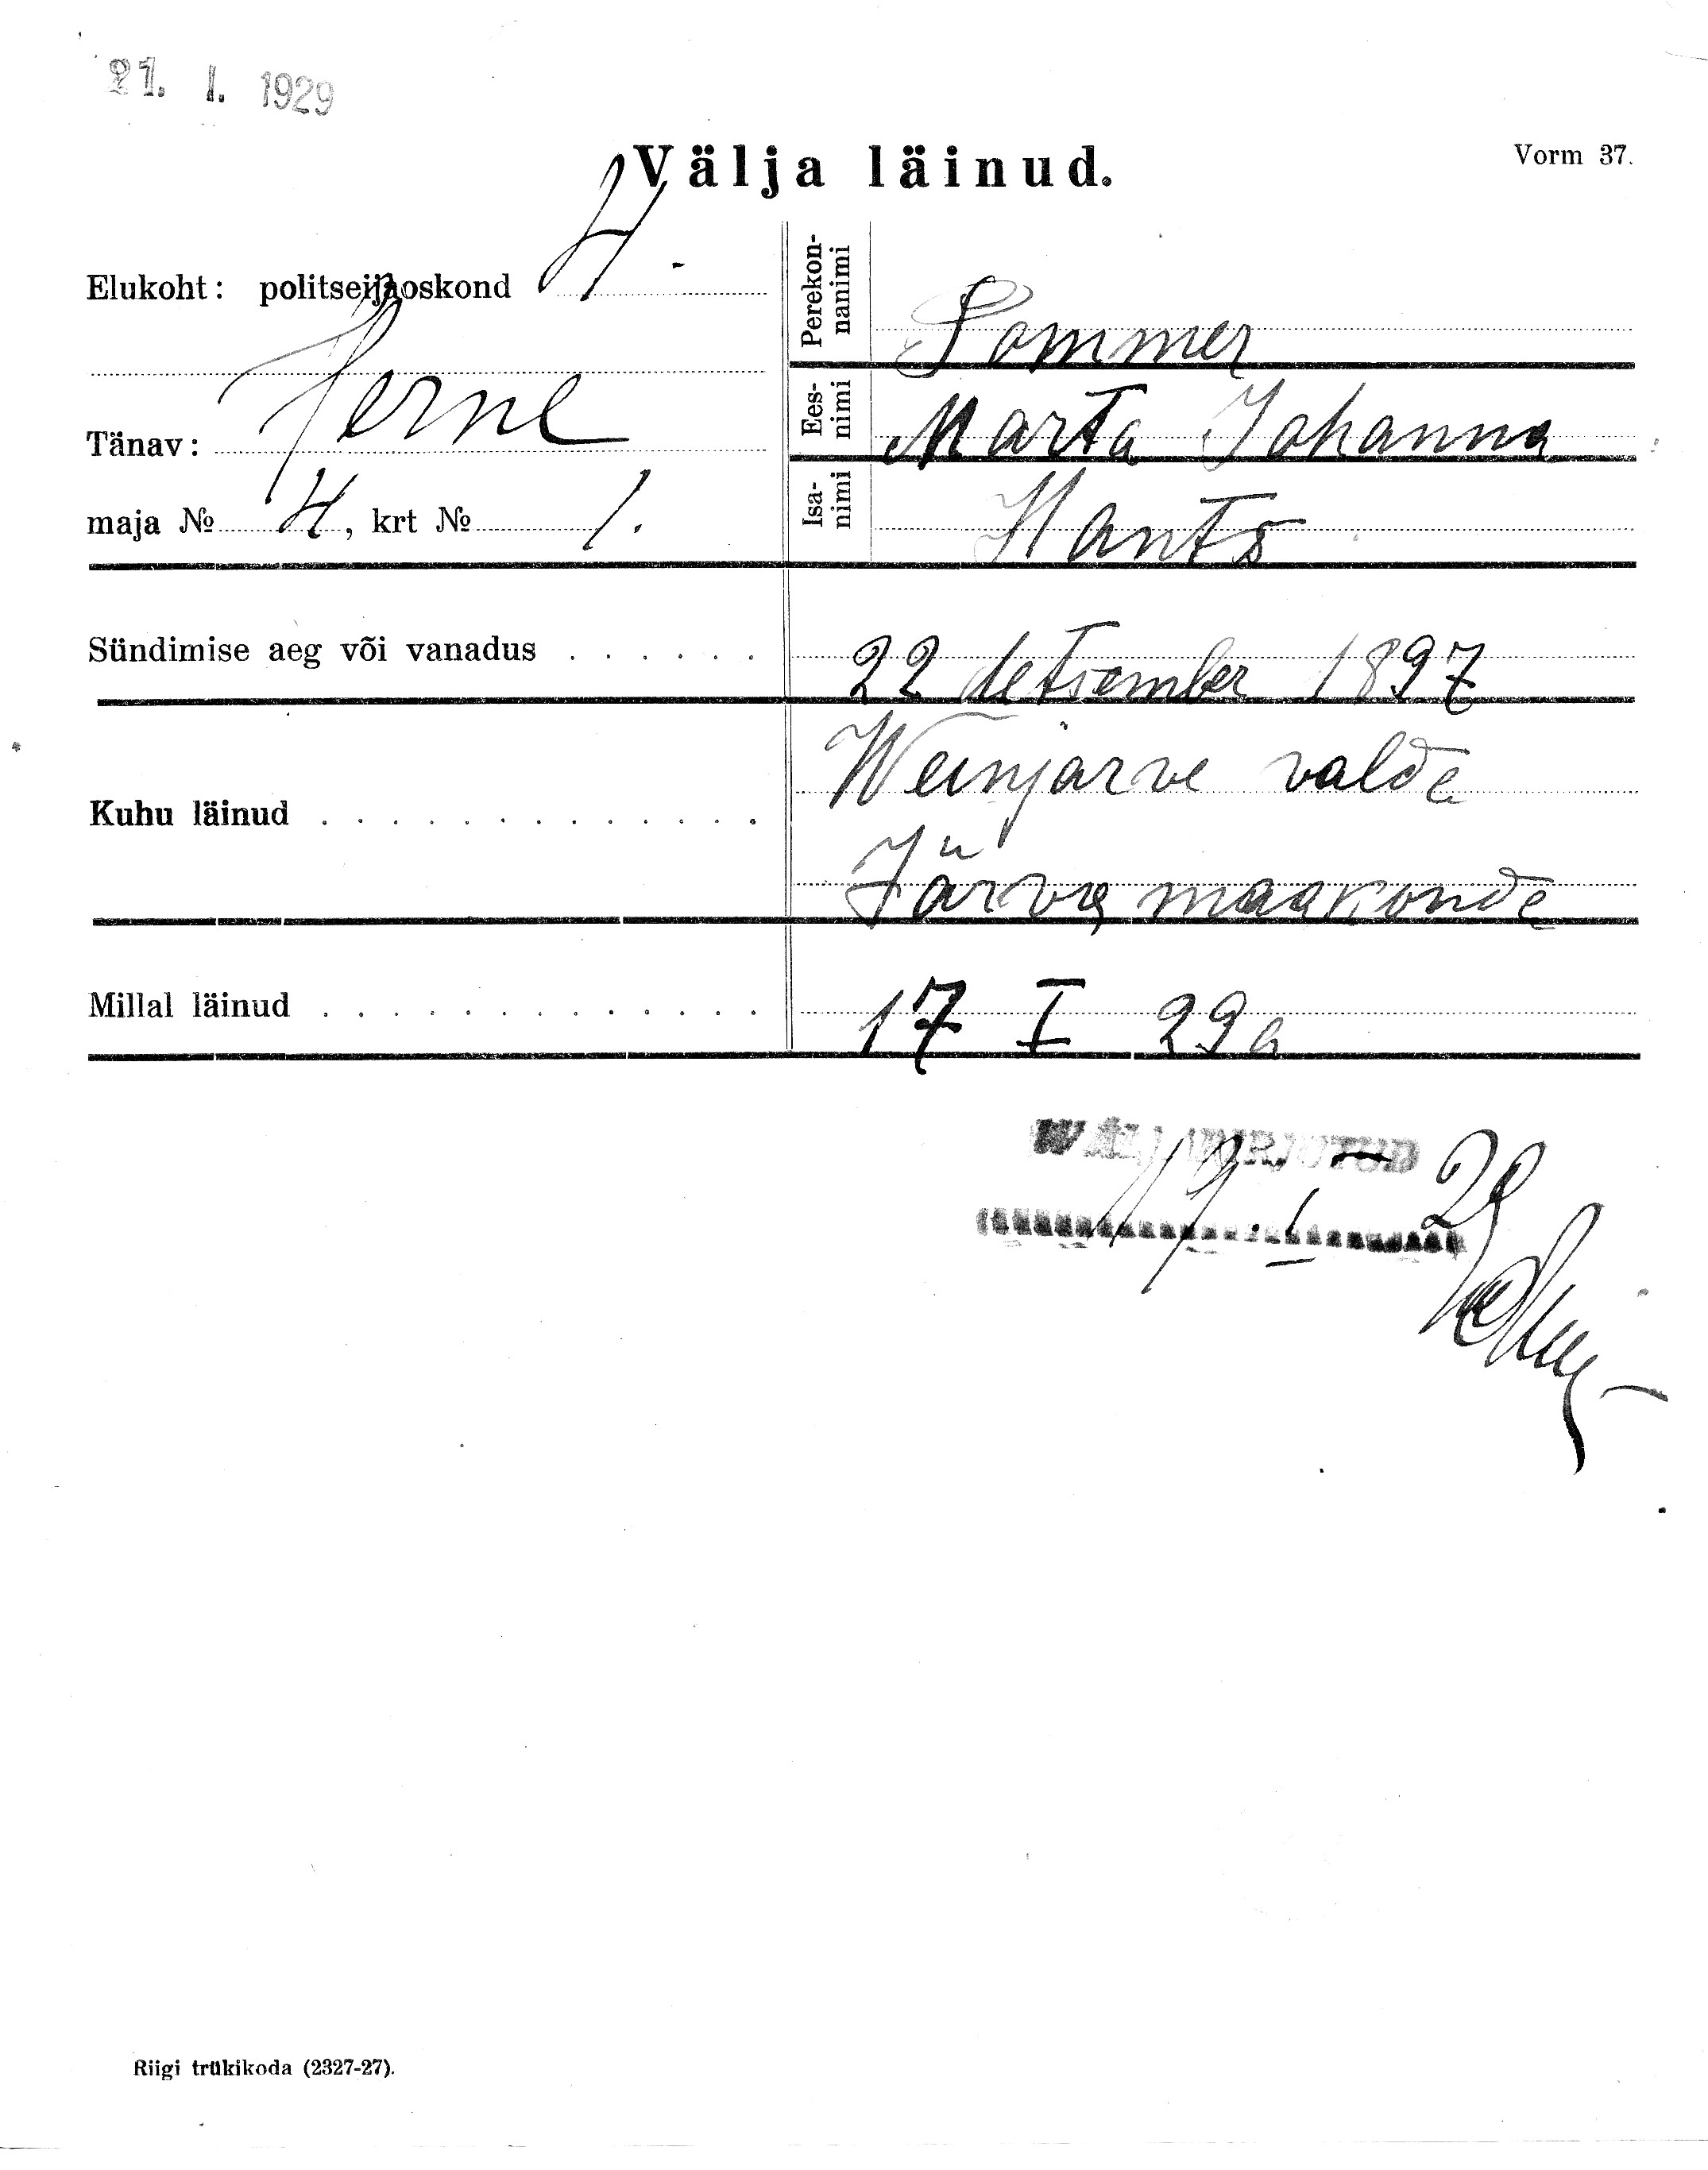 21. I. 1929
Välja läinud.
Vorm 37.
Elukoht: politseijaoskond 4.
Tänav: Herne
maja № 4, krt № 1.
Perekon-
nanimi
Sommer
Ees-
nimi
Marta Johanna
Isa-
nimi
Hants
Sündimise aeg või vanadus . . . . . . 22 detsember 1897
Kuhu läinud . . . . . . . . . . . . . Weinjärve valda
Järva maakonda
Millal läinud . . . . . . . . . . . . . 17 I 29 a
WÄLJAKIRJUTUD
19. I 29
Riigi trükikoda (2327-27).